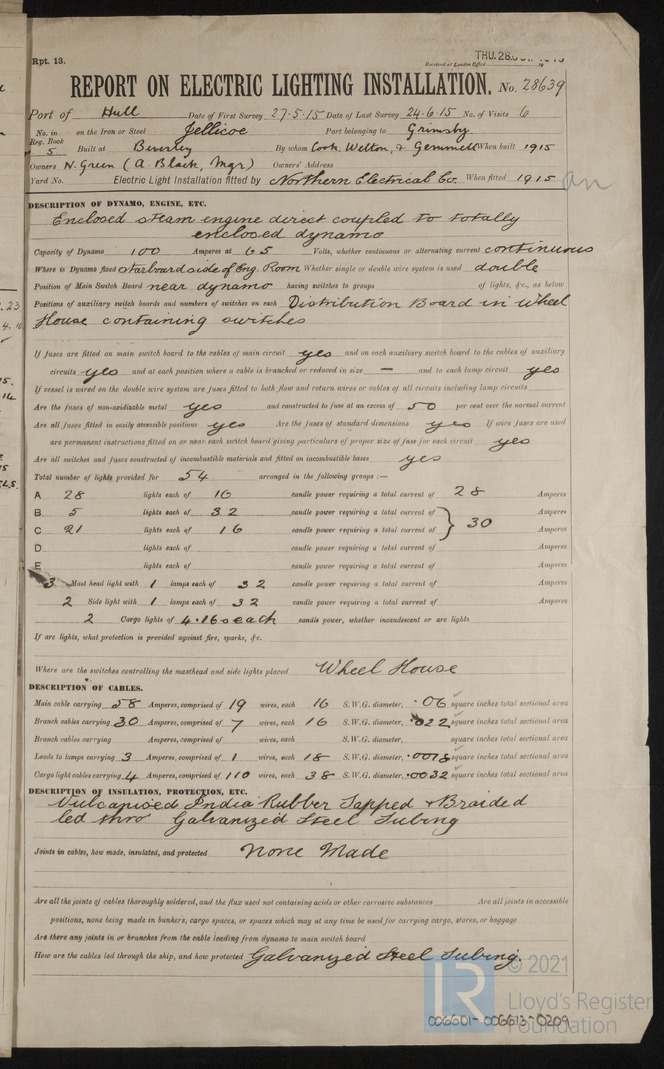 Rpt. 13.
THU. 28.
Received at London Office
REPORT ON ELECTRIC LIGHTING INSTALLATION. No. 28639
Port of Hull Date of First Survey 27.5.15 Date of Last Survey 24.6.15 No. of Visits 6
No. in Reg. Book 5 on the Iron or Steel Jellicoe Port belonging to Grimsby
Built at Beverley By whom Cook, Welton, & Gemmell When built 1915
Owners N. Green (A. Black, Mgr) Owners' Address
Yard No. Electric Light Installation fitted by Northern Electrical Co. When fitted 1915
DESCRIPTION OF DYNAMO, ENGINE, ETC.
Enclosed steam engine direct coupled to totally
enclosed dynamo
Capacity of Dynamo 100 Amperes at 65 Volts, whether continuous or alternating current continuous
Where is Dynamo fixed starboard side of Eng. Room Whether single or double wire system is used double
Position of Main Switch Board near dynamo having switches to groups of lights, &c., as below
Positions of auxiliary switch boards and numbers of switches on each Distribution Board in Wheel
House containing switches
If fuses are fitted on main switch board to the cables of main circuit yes and on each auxiliary switch board to the cables of auxiliary
circuits yes and at each position where a cable is branched or reduced in size — and to each lamp circuit yes
If vessel is wired on the double wire system are fuses fitted to both flow and return wires or cables of all circuits including lamp circuits
Are the fuses of non-oxidizable metal yes and constructed to fuse at an excess of 50 per cent over the normal current
Are all fuses fitted in easily accessible positions yes Are the fuses of standard dimensions yes If wire fuses are used
are permanent instructions fitted on or near each switch board giving particulars of proper size of fuse for each circuit yes
Are all switches and fuses constructed of incombustible materials and fitted on incombustible bases yes
Total number of lights provided for 54 arranged in the following groups :—
A 28 lights each of 16 candle power requiring a total current of 28 Amperes
B 5 lights each of 32 candle power requiring a total current of Amperes
C 21 lights each of 16 candle power requiring a total current of } 30 Amperes
D lights each of candle power requiring a total current of Amperes
E lights each of candle power requiring a total current of Amperes
3 Mast head light with 1 lamps each of 32 candle power requiring a total current of Amperes
2 Side light with 1 lamps each of 32 candle power requiring a total current of Amperes
2 Cargo lights of 4.16s each candle power, whether incandescent or arc lights
If arc lights, what protection is provided against fire, sparks, &c.
Where are the switches controlling the masthead and side lights placed Wheel House
DESCRIPTION OF CABLES.
Main cable carrying 58 Amperes, comprised of 19 wires, each 16 S.W.G. diameter, .06 square inches total sectional area
Branch cables carrying 30 Amperes, comprised of 7 wires, each 16 S.W.G. diameter, .022 square inches total sectional area
Branch cables carrying Amperes, comprised of wires, each S.W.G. diameter, square inches total sectional area
Leads to lamps carrying 3 Amperes, comprised of 1 wires, each 18 S.W.G. diameter, .0018 square inches total sectional area
Cargo light cables carrying 4 Amperes, comprised of 110 wires, each 38 S.W.G. diameter, .0032 square inches total sectional area
DESCRIPTION OF INSULATION, PROTECTION, ETC.
Vulcanised India Rubber Tapped & Braided
led thro' Galvanized Steel Tubing
Joints in cables, how made, insulated, and protected None Made
Are all the joints of cables thoroughly soldered, and the flux used not containing acids or other corrosive substances Are all joints in accessible
positions, none being made in bunkers, cargo spaces, or spaces which may at any time be used for carrying cargo, stores, or baggage
Are there any joints in or branches from the cable leading from dynamo to main switch board
How are the cables led through the ship, and how protected Galvanized Steel Tubing.
© 2021
LR Lloyd's Register
Foundation
006601-006613-0209